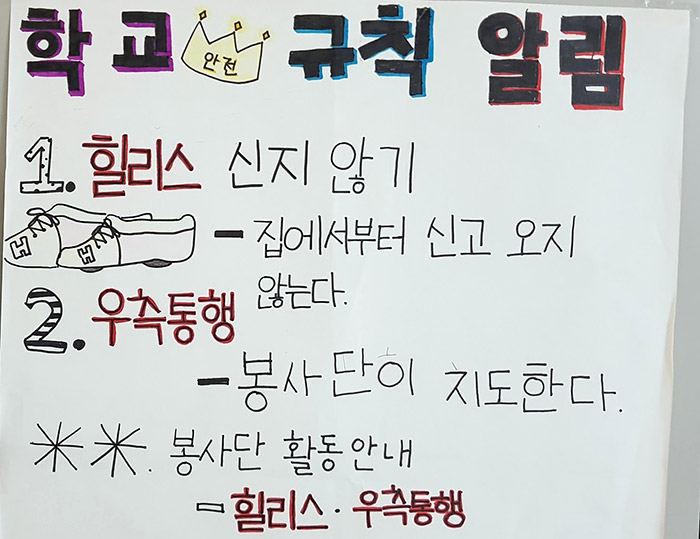 학교 안전 규칙 알림
1. 힐리스 신지 않기
- 집에서부터 신고 오지
않는다.
2. 우측통행
- 봉사단이 지도한다.
**. 봉사단 활동안내
- 힐리스·우측통행